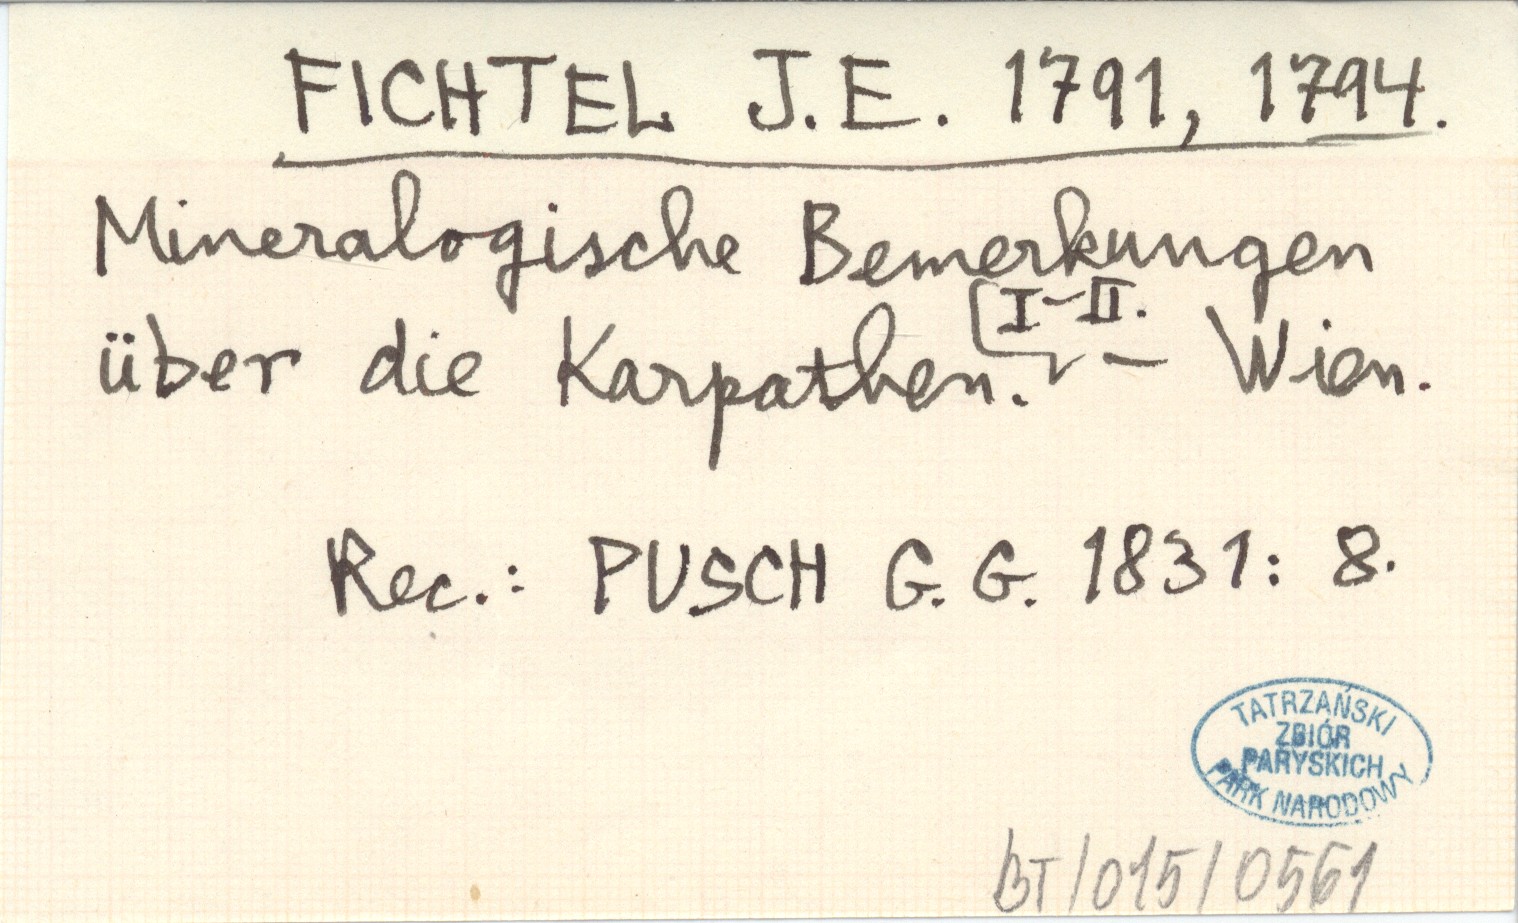 FICHTEL J.E. 1791, 1794.
Mineralogische Bemerkungen
I-II.
über die Karpathen. — Wien.
Rec.: PUSCH G.G. 1831: 8.
TATRZAŃSKI
ZBIÓR
PARYSKICH
PARK NARODOWY
BT/015/0561